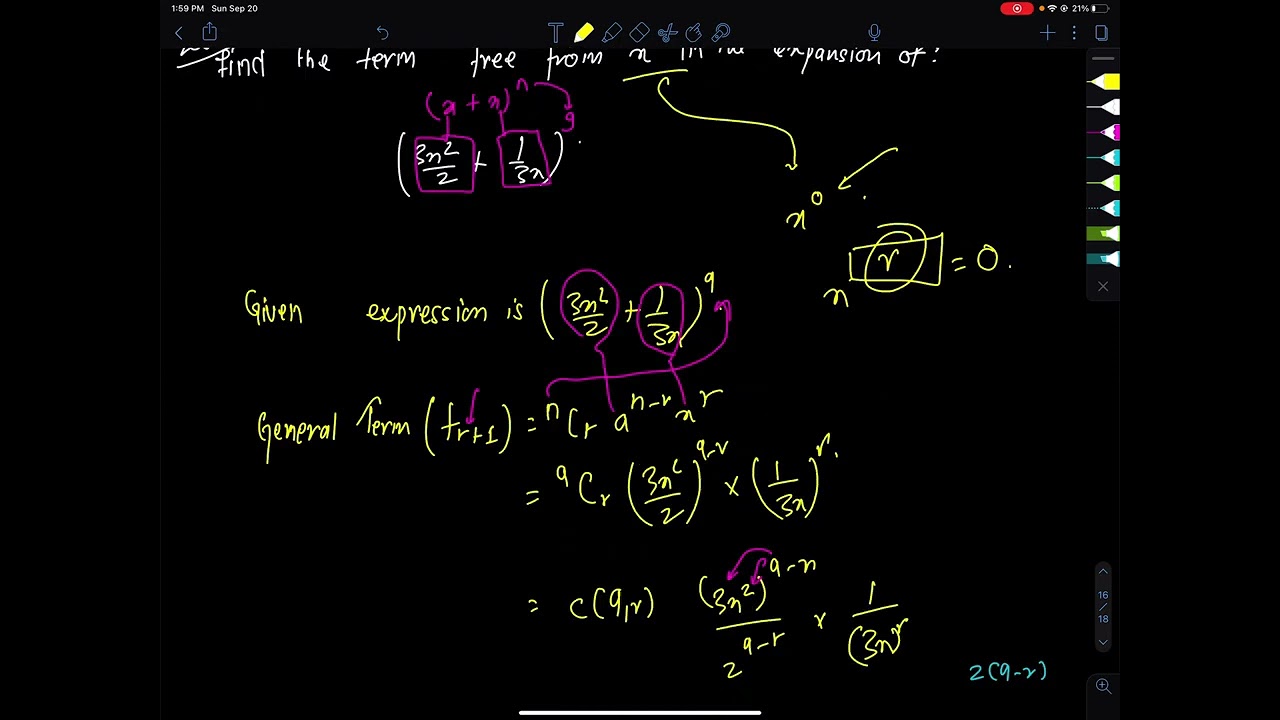 1:59 PM Sun Sep 20
21%
T
find the term free from x in the expansion of:
(a + x)^n
9
(3x²/2 + 1/3x)
x^0
x^r = 0.
Given expression is (3x²/2 + 1/3x)^9
n
General Term (t_{r+1}) = ^nC_r a^{n-r} x^r
= ^9C_r (3x²/2)^{9-r} × (1/3x)^r.
= C(9,r) (3x²)^{9-r}/2^{9-r} × 1/(3x)^r
2(9-r)
16
/
18